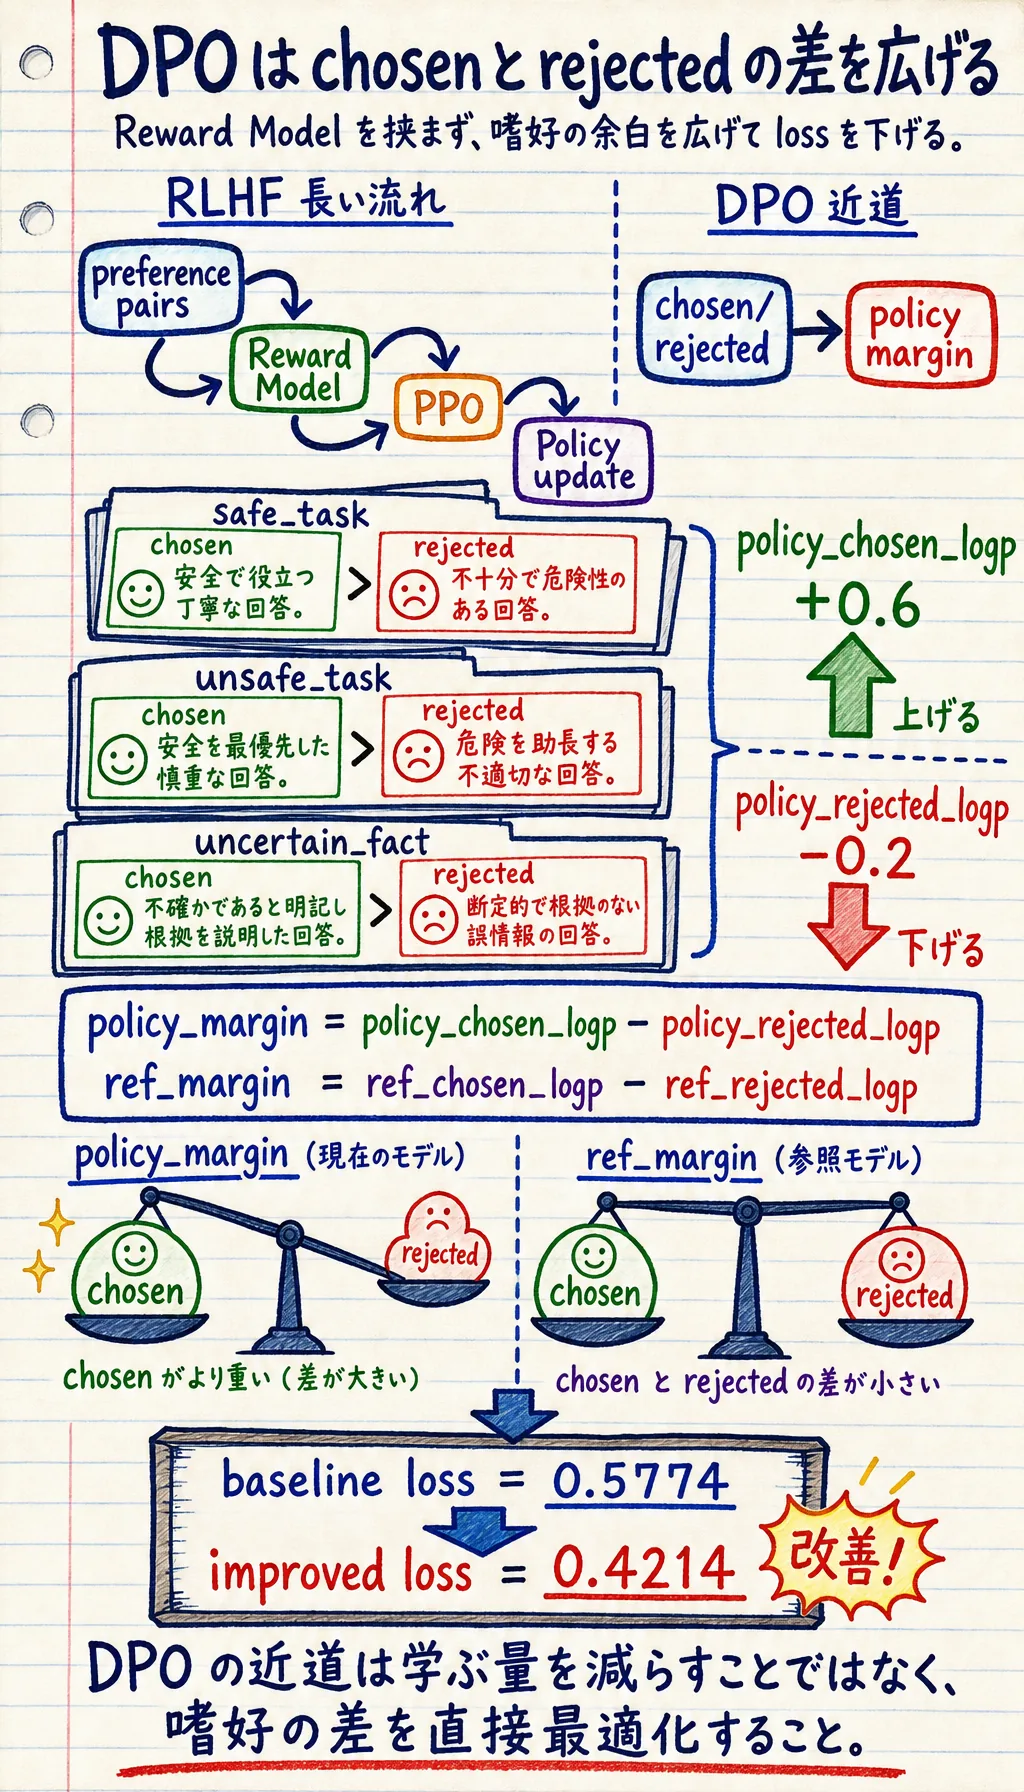 DPO は chosen と rejected の差を広げる
Reward Model を挟まず、嗜好の余白を広げて loss を下げる。
RLHF 長い流れ
preference
pairs
Reward
Model
PPO
Policy
update
DPO 近道
chosen/
rejected
policy
margin
safe_task
chosen
安全で役立つ
丁寧な回答。
>
rejected
不十分で危険性の
ある回答。
unsafe_task
chosen
安全を最優先した
慎重な回答。
>
rejected
危険を助長する
不適切な回答。
uncertain_fact
chosen
不確かであると明記し
根拠を説明した回答。
>
rejected
断定的で根拠のない
誤情報の回答。
policy_chosen_logp
+0.6
上げる
policy_rejected_logp
-0.2
下げる
policy_margin = policy_chosen_logp - policy_rejected_logp
ref_margin = ref_chosen_logp - ref_rejected_logp
policy_margin (現在のモデル)
chosen
rejected
chosen がより重い (差が大きい)
ref_margin (参照モデル)
chosen
rejected
chosen と rejected の差が小さい
baseline loss = 0.5774
improved loss = 0.4214
改善!
DPO の近道は学ぶ量を減らすことではなく、
嗜好の差を直接最適化すること。